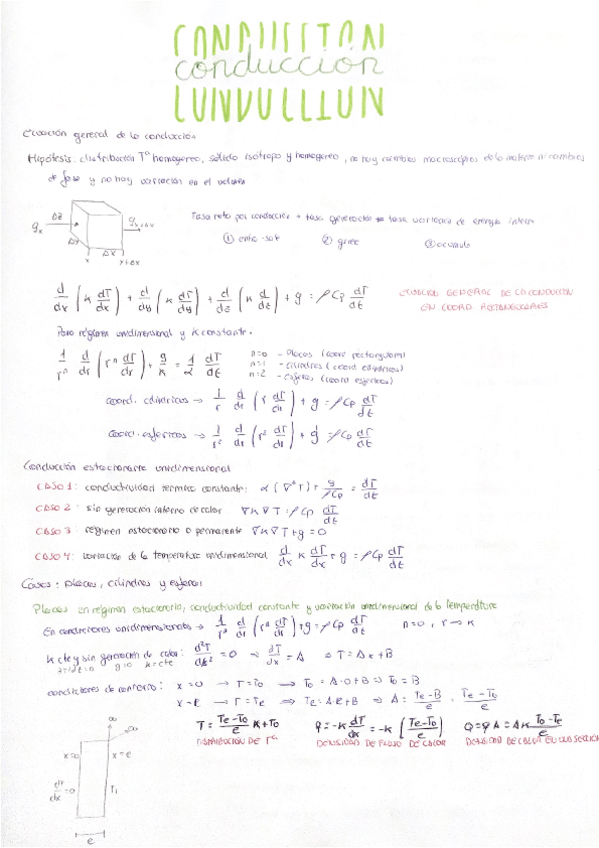 CONDUCCIÓN
conducción
CONDUCCIÓN
Ecuación general de la conducción
Hipótesis: distribución Tª homogéneo, sólido isótropo y homogéneo, no hay cambios macroscópicos de la materia ni cambios
de fase y no hay variación en el volumen
Tasa neta por conducción + tasa generación = tasa variación de energía interna
① entra-sale ② gene ③ acumula
qx Δz Δy Δx qx+Δx
x x+Δx
d/dx (K dT/dx) + d/dy (K dT/dy) + d/dz (K dT/dz) + g = ρ Cp dT/dt
ECUACIÓN GENERAL DE LA CONDUCCIÓN
EN COORD RECTANGULARES
Para régimen unidimensional y K constante.
1/rⁿ d/dr (rⁿ dT/dr) + g/K = 1/α dT/dt
n=0 - Placas (coord rectangulares)
n=1 - Cilindros (coord cilíndricas)
n=2 - Esferas (coord esféricas)
coord. cilíndricas → 1/r d/dr (r dT/dr) + g = ρ Cp dT/dt
coord. esféricas → 1/r² d/dr (r² dT/dr) + g = ρ Cp dT/dt
Conducción estacionaria unidimensional
CASO 1: conductividad térmica constante: α (∇²T) + g/ρCp = dT/dt
CASO 2: sin generación interna de calor ∇K∇T = ρ Cp dT/dt
CASO 3: régimen estacionario o permanente ∇K∇T + g = 0
CASO 4: variación de la temperatura unidimensional d/dx K dT/dx + g = ρ Cp dT/dt
Casos: placas, cilindros y esferas
Placas en régimen estacionario, conductividad constante y variación unidimensional de la temperatura
En condiciones unidimensionales → 1/rⁿ d/dr (rⁿ dT/dr) + g = ρ Cp dT/dt n=0, r → x
K cte y sin generación de calor: d²T/dx² = 0 → dT/dx = A → T = Ax + B
g=0 K=cte
condiciones de contorno: x=0 → T=T0 → T0 = A·0+B → T0 = B
x=e → T=Te → Te = A·e+B → A = Te-B/e = Te-T0/e
T = Te-T0/e x + T0
DISTRIBUCIÓN DE Tª
q = -K dT/dx = -K (Te-T0/e)
DENSIDAD DE FLUJO DE CALOR
Q = qA = AK T0-Te/e
x=0 x=e
dT/dx =0 T1
e